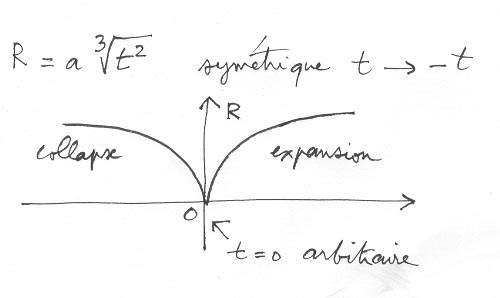 R = a ∛t² symétrique t → -t
R
collapse expansion
0
t=0 arbitraire